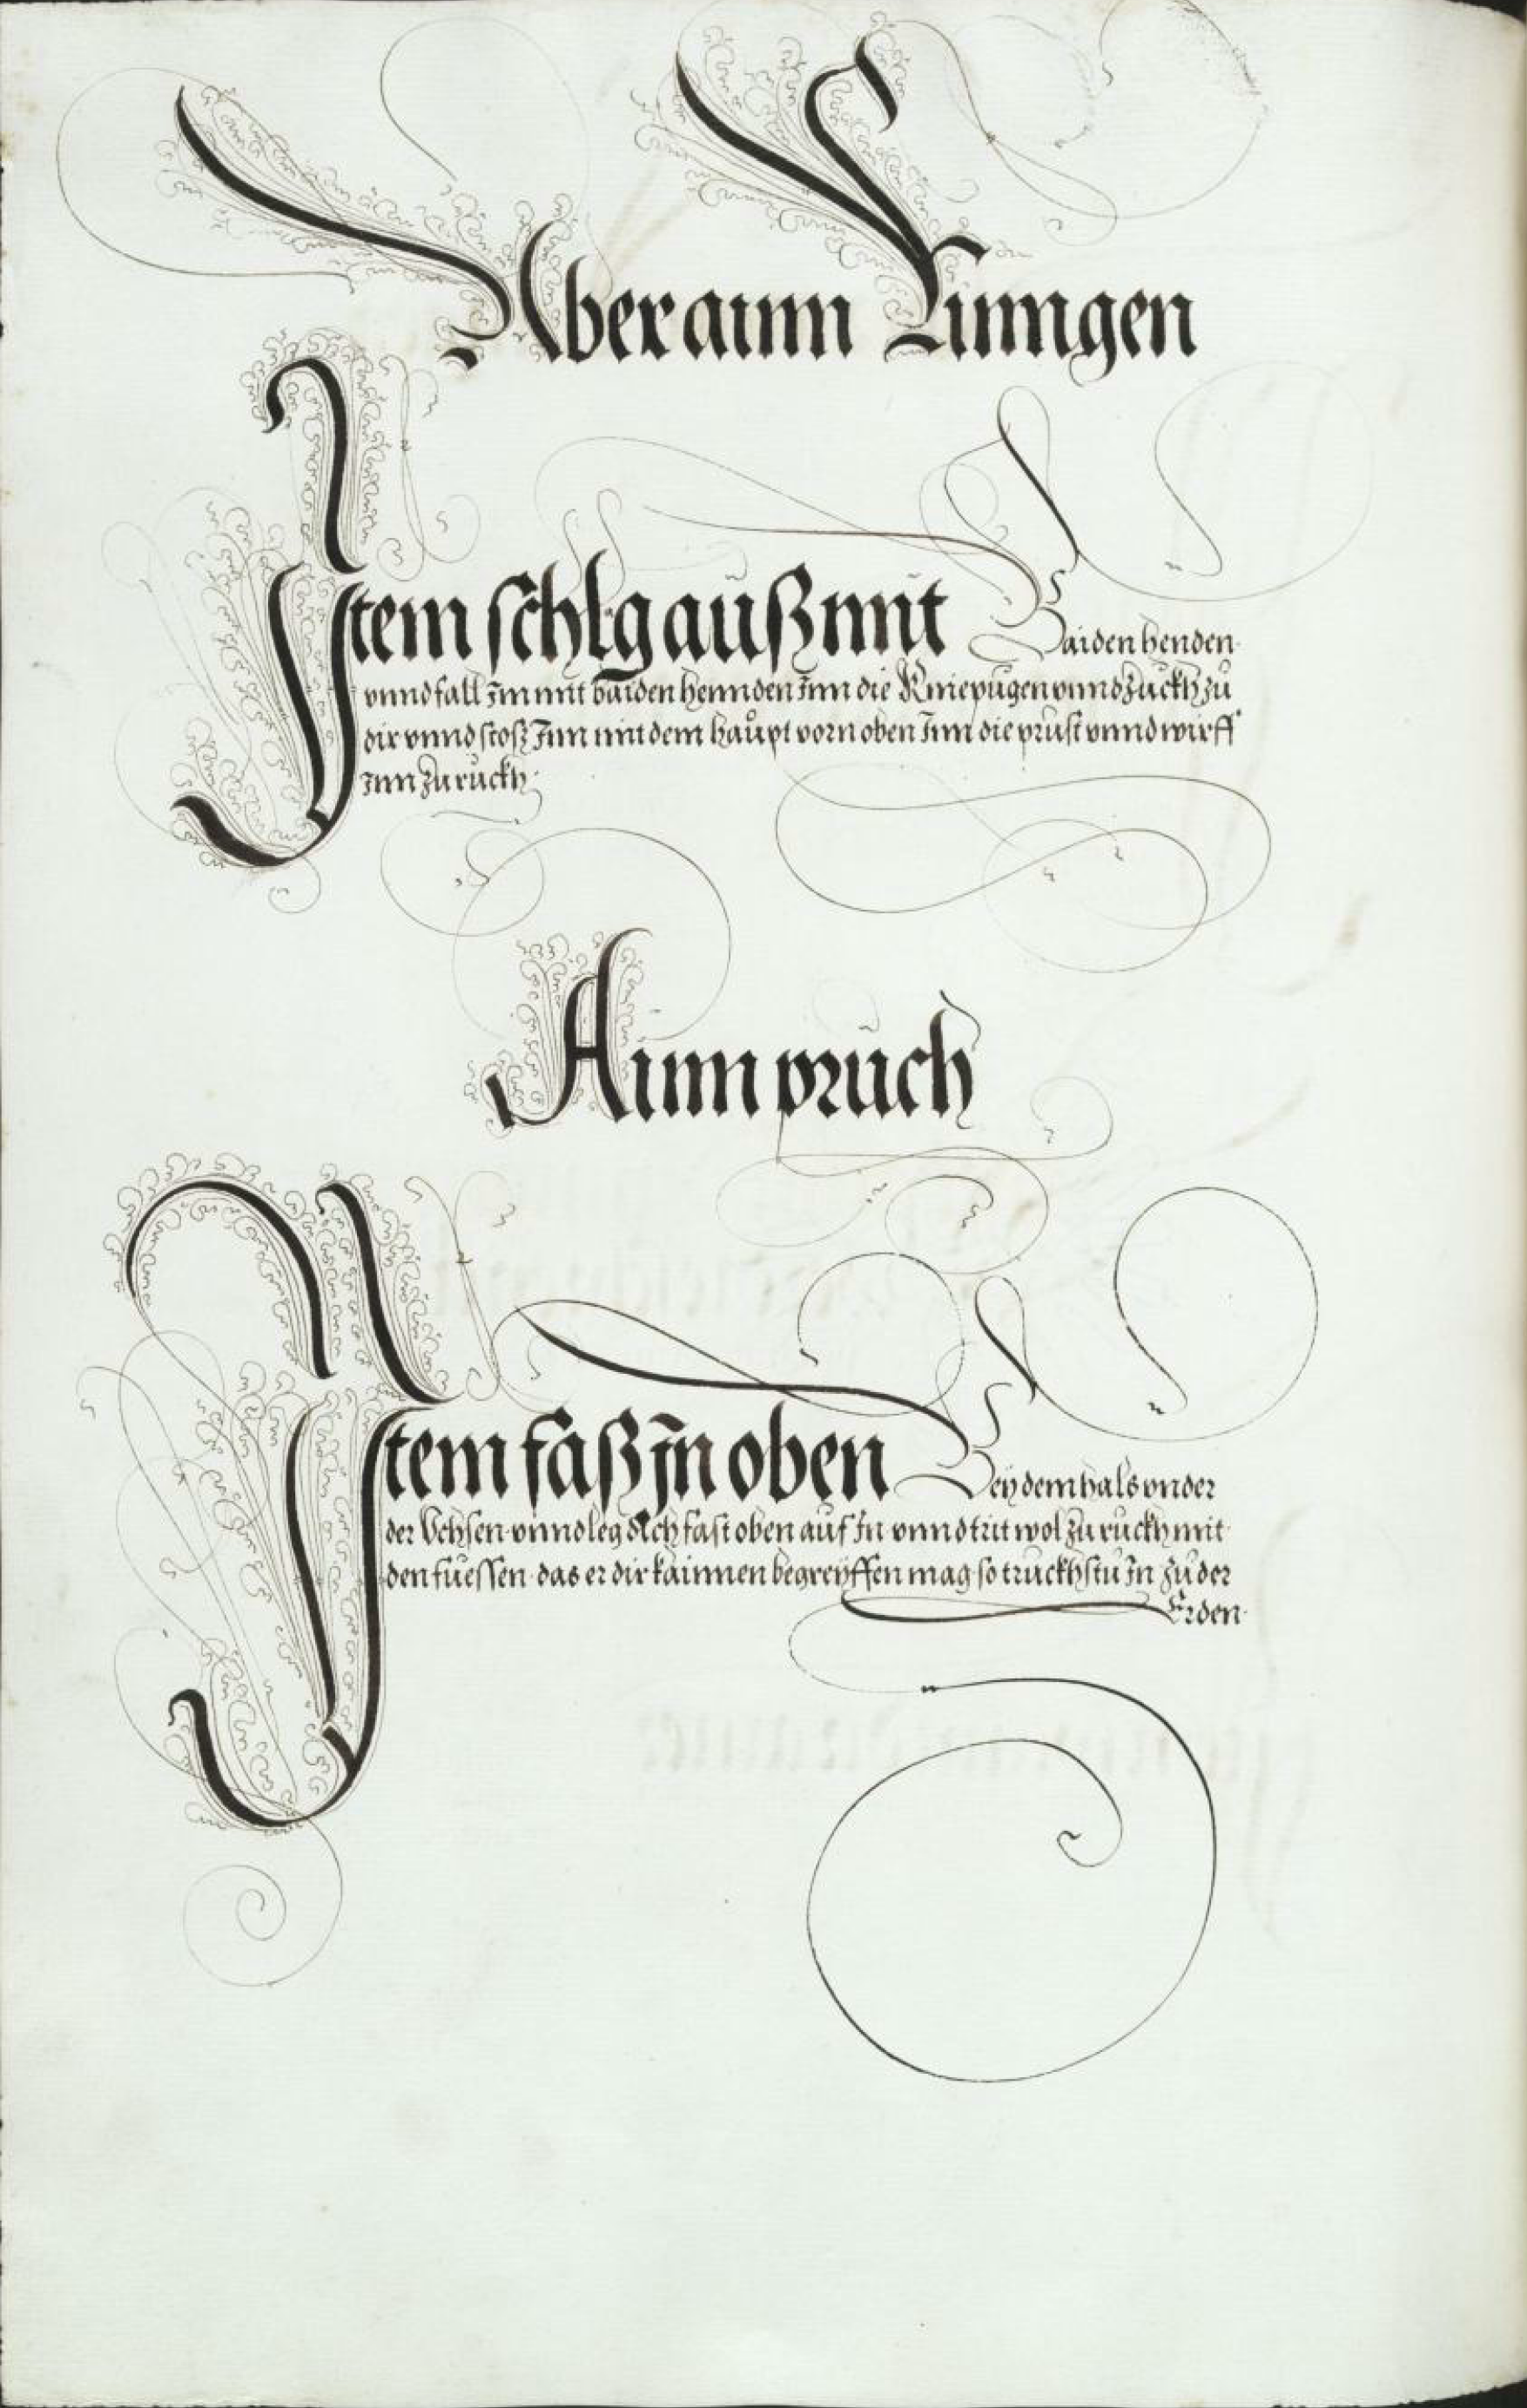 Aber ainn Rinngen
Item schlg auß mit Baiden henden
vnnd fall Im mit baiden hennden Inn die Kniepügen vnnd zuckh zu
dir vnnd stoß Inn mit dem haupt vorn oben Inn die prust vnnd wirff
Inn zu ruckh
Ainn pruch
Item faß Jn oben Bey dem hals vnder
der Vchsen vnnd leg dich fast oben auf In vnnd trit wol zu ruckh mit
den fuessen das er dir kainnen begreyffen mag so truckhstu In zu der
Erden